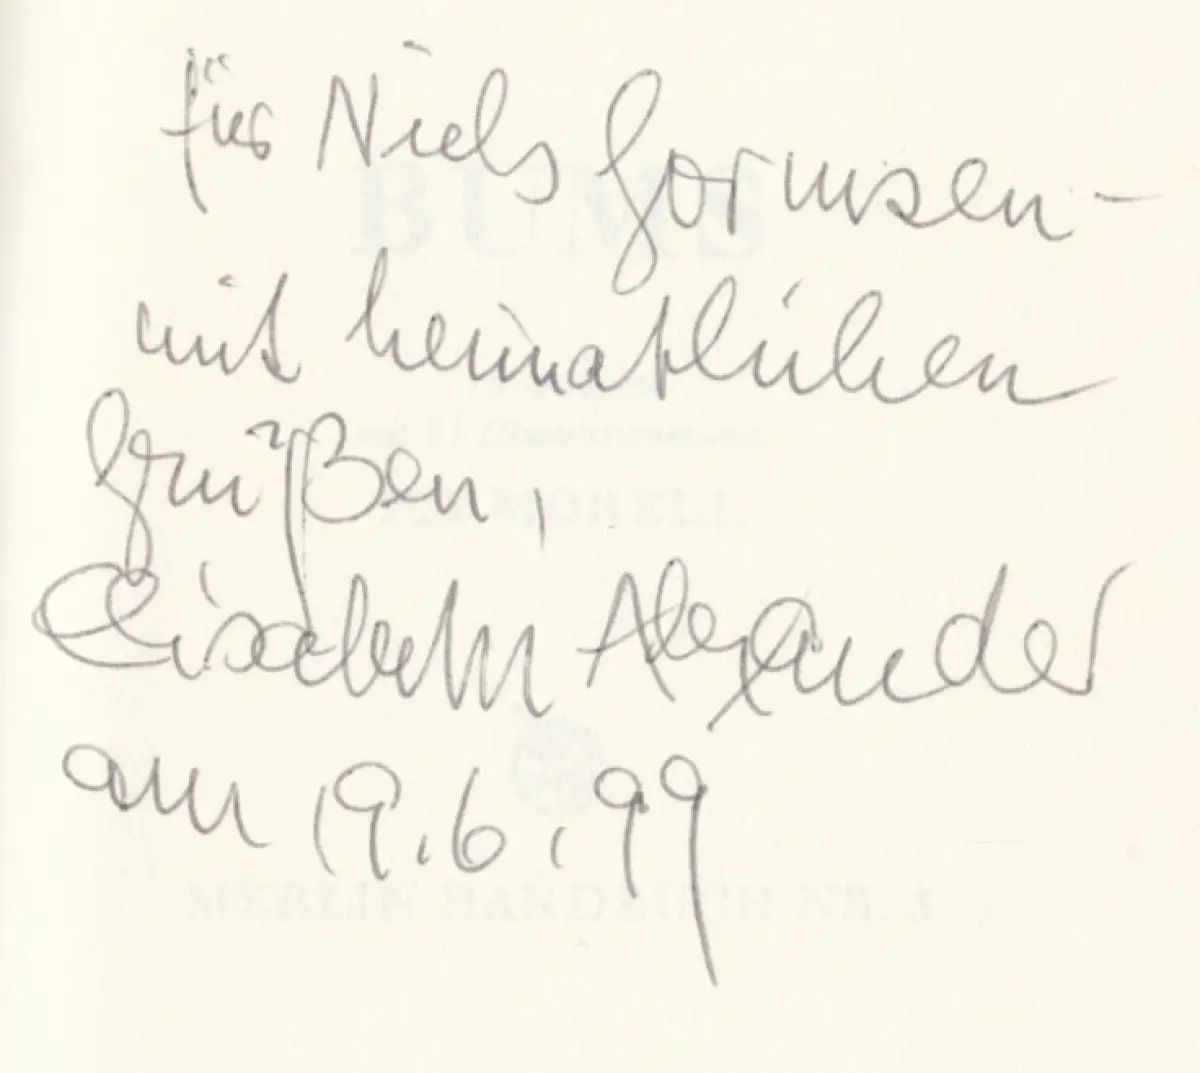 für Niels Gormsen -
mit heimatlichen
Grüßen,
Elisabeth Alexander
am 19.6.99
BUMS
MORELL
MERLIN HANDBUCH NR. 3